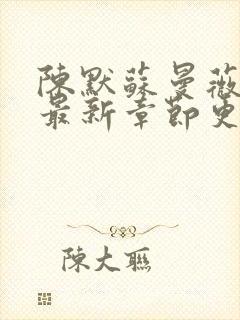 陳默蘇曼薇
最新章節更
陳大聯